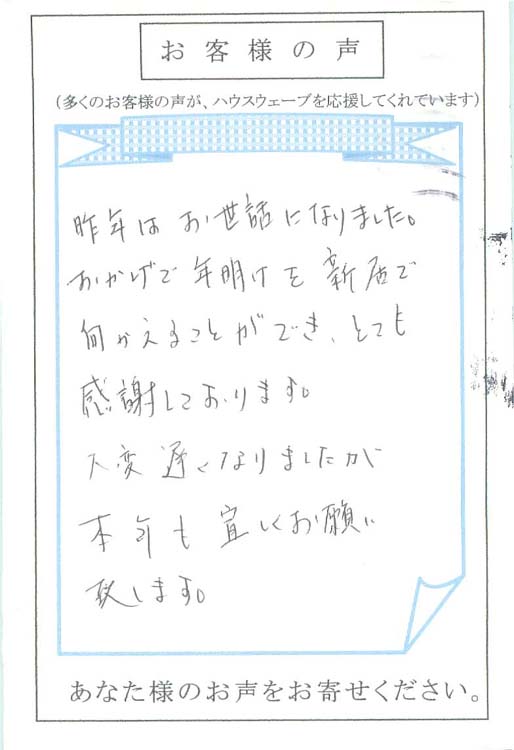 お客様の声
(多くのお客様の声が、ハウスウェーブを応援してくれています)
昨年はお世話になりました。
おかげで年明けを新居で
向かえることができ、とても
感謝しております。
大変遅くなりましたが
本年も宜しくお願い
致します。
あなた様のお声をお寄せください。